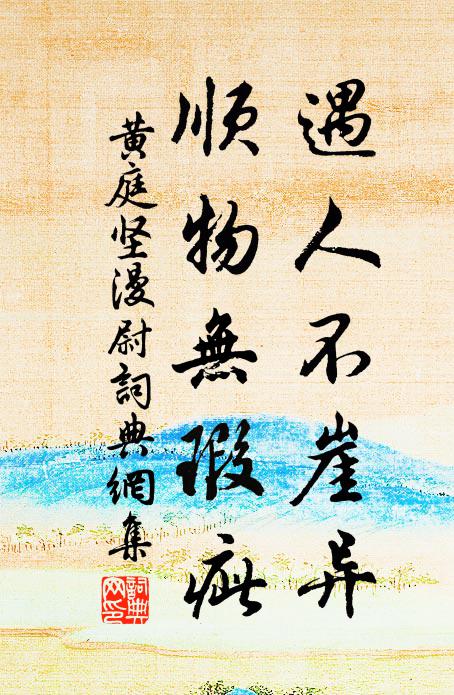 遇人不崖异
順物無瑕疵
黄庭坚漫尉詞典網集